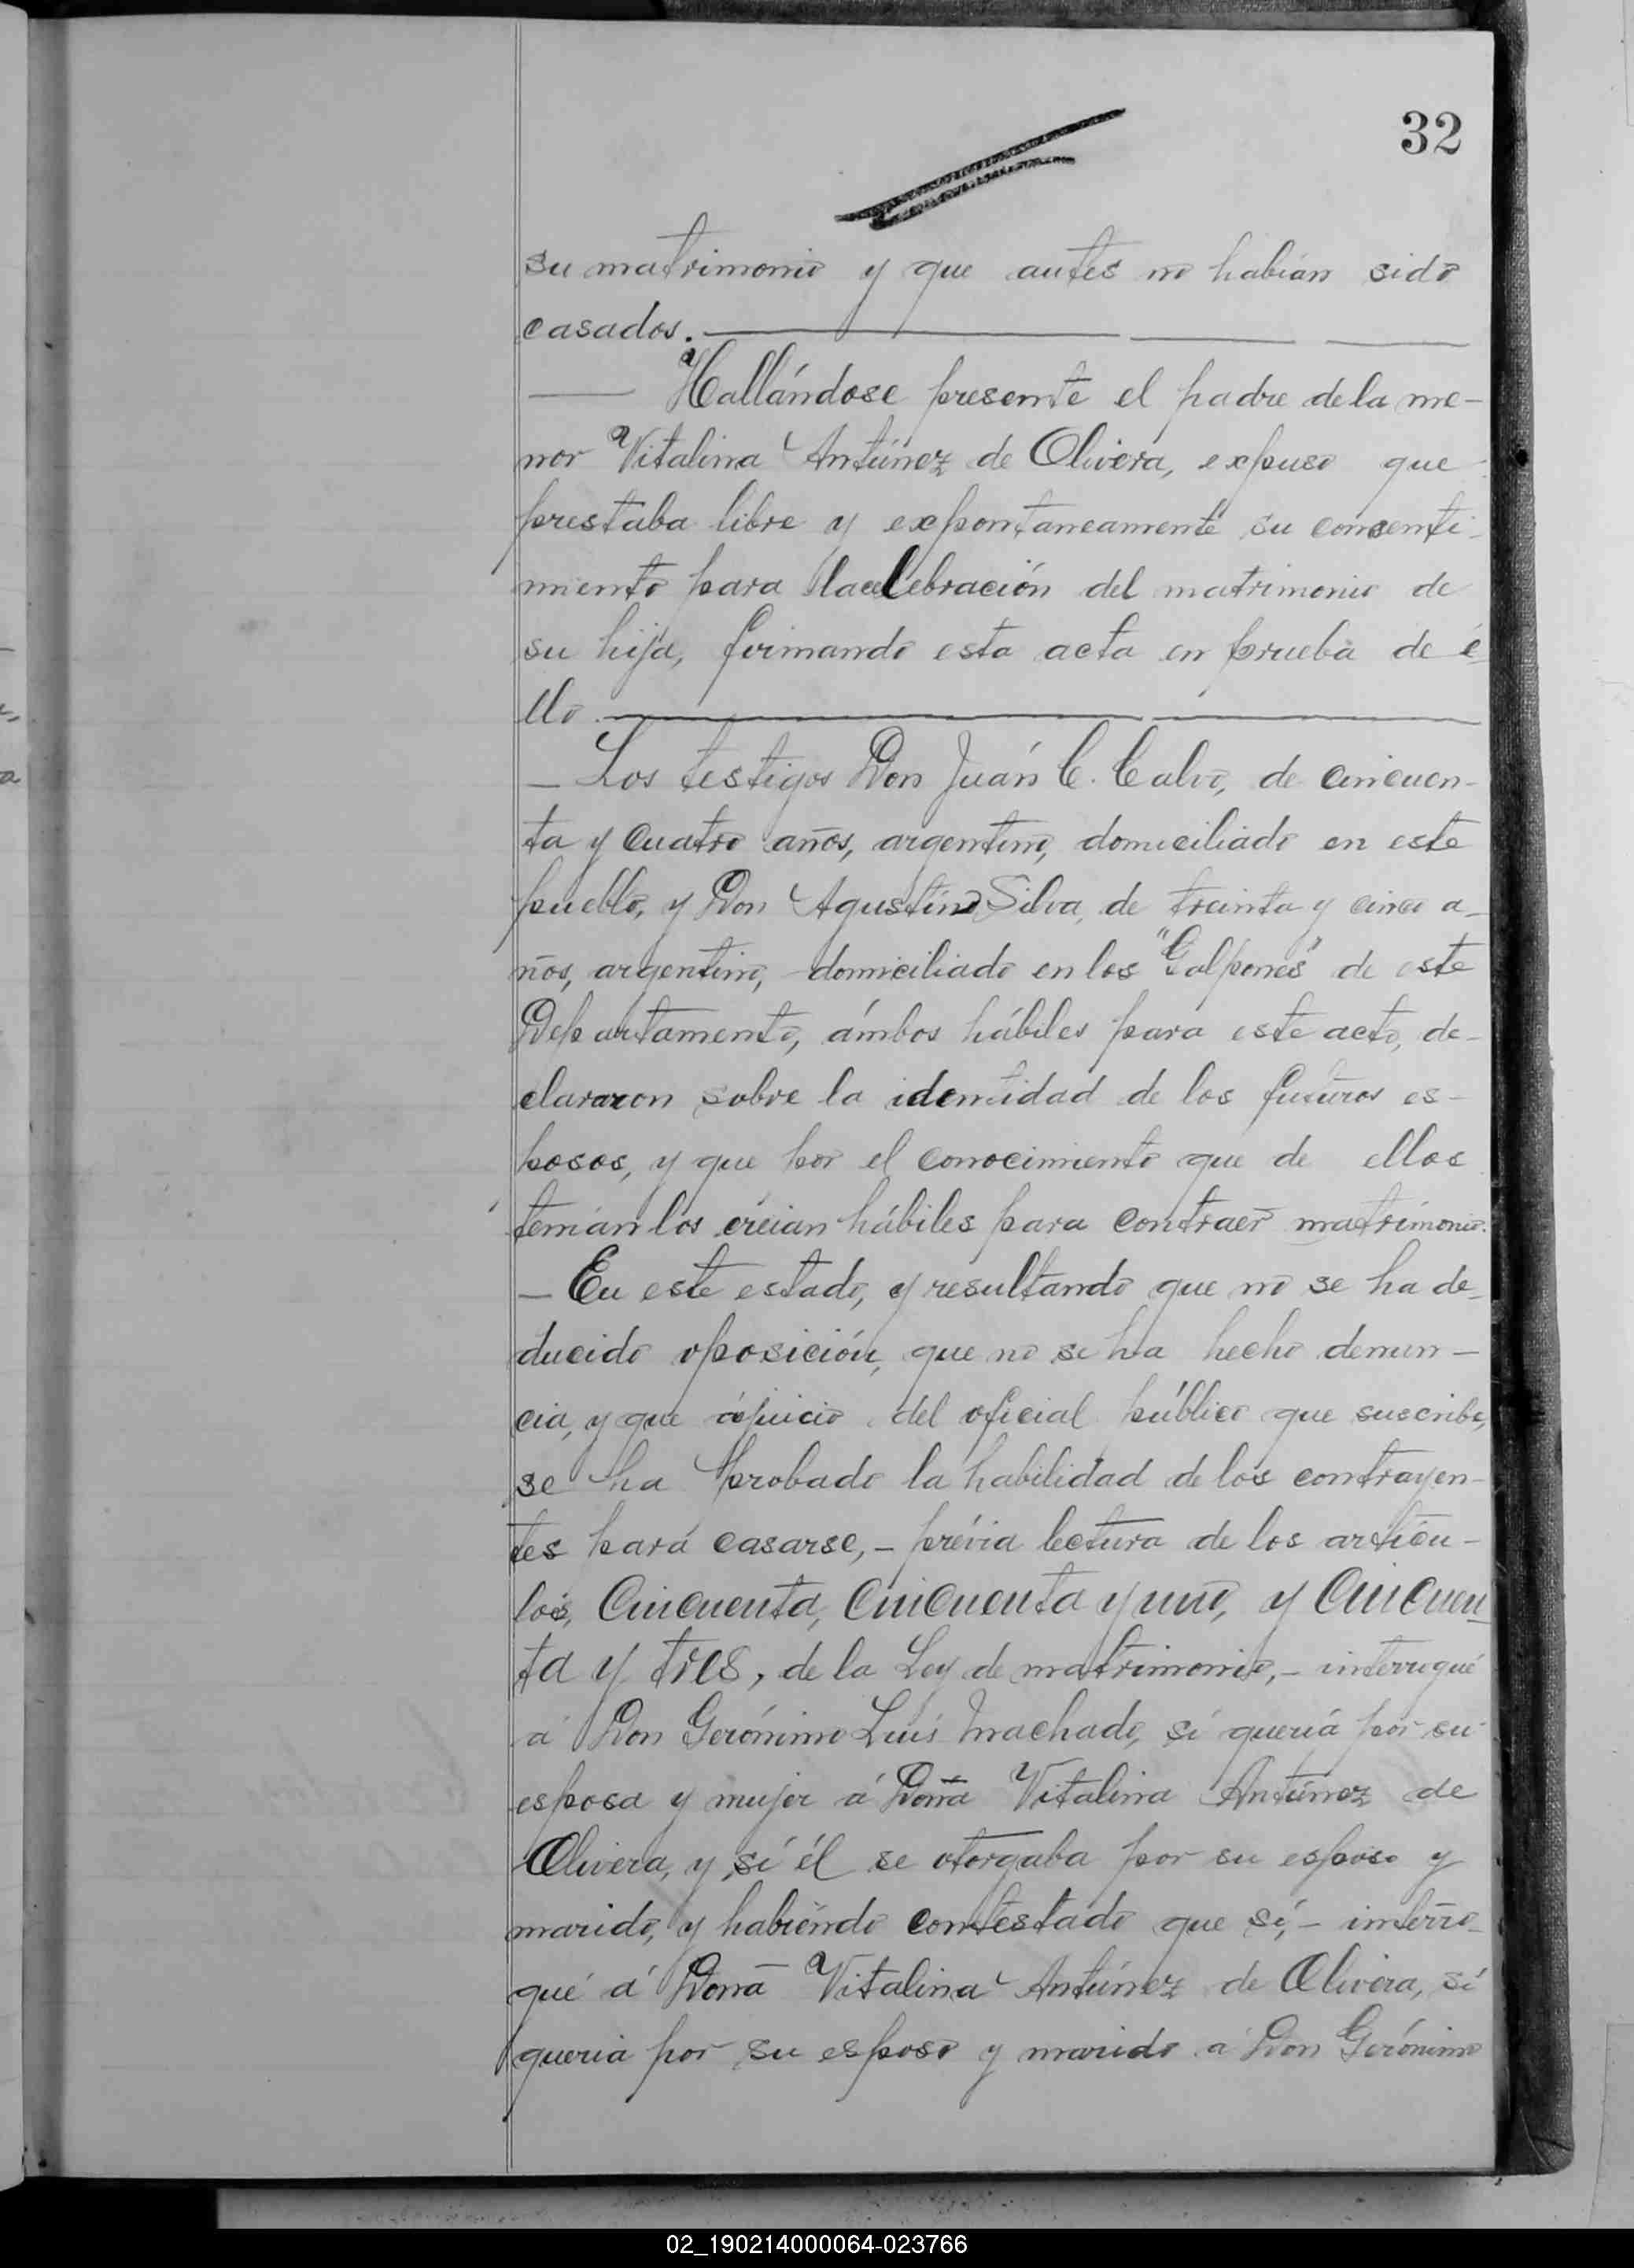 32
su matrimonio y que antes no habían sido
casados.
Hallándose presente el padre de la me-
nor Vitalina Antúnez de Olivera, expuso que
prestaba libre y expontaneamente su consenti-
miento para la celebración del matrimonio de
su hija, firmando esta acta en prueba de e-
llo.
— Los testigos Don Juán C. Calvo, de cincuen-
ta y cuatro años, argentino, domiciliado en este
pueblo, y Don Agustino Silva, de treinta y cinco a-
ños, argentino, domiciliado en los "Galpones" de este
Departamento, ámbos hábiles para este acto, de-
clararon sobre la identidad de los futuros es-
posos, y que por el conocimiento que de ellos
tenían los créian hábiles para contraer matrimonio.
— En este estado, y resultando que no se ha de-
ducido oposición, que no se ha hecho denun-
cia, y que á juicio del oficial público que suscribe,
se ha probado la habilidad de los contrayen-
tes pará casarse, – prévia lectura de los articu-
los, Cincuenta, Cincuenta y uno, y Cincuen-
ta y tres, de la Ley de matrimonio, – interrogué
á Don Gerónimo Luis Machado, sí quería por su
esposa y mujer á Doña Vitalina Antúnez de
Olivera, y sí él se otorgaba por su esposo y
marido, y habiéndo contestado que sí, – interro-
gué á Doña Vitalina Antúnez de Olivera, sí
queria por su esposo y marido á Don Gerónimo
02_190214000064-023766